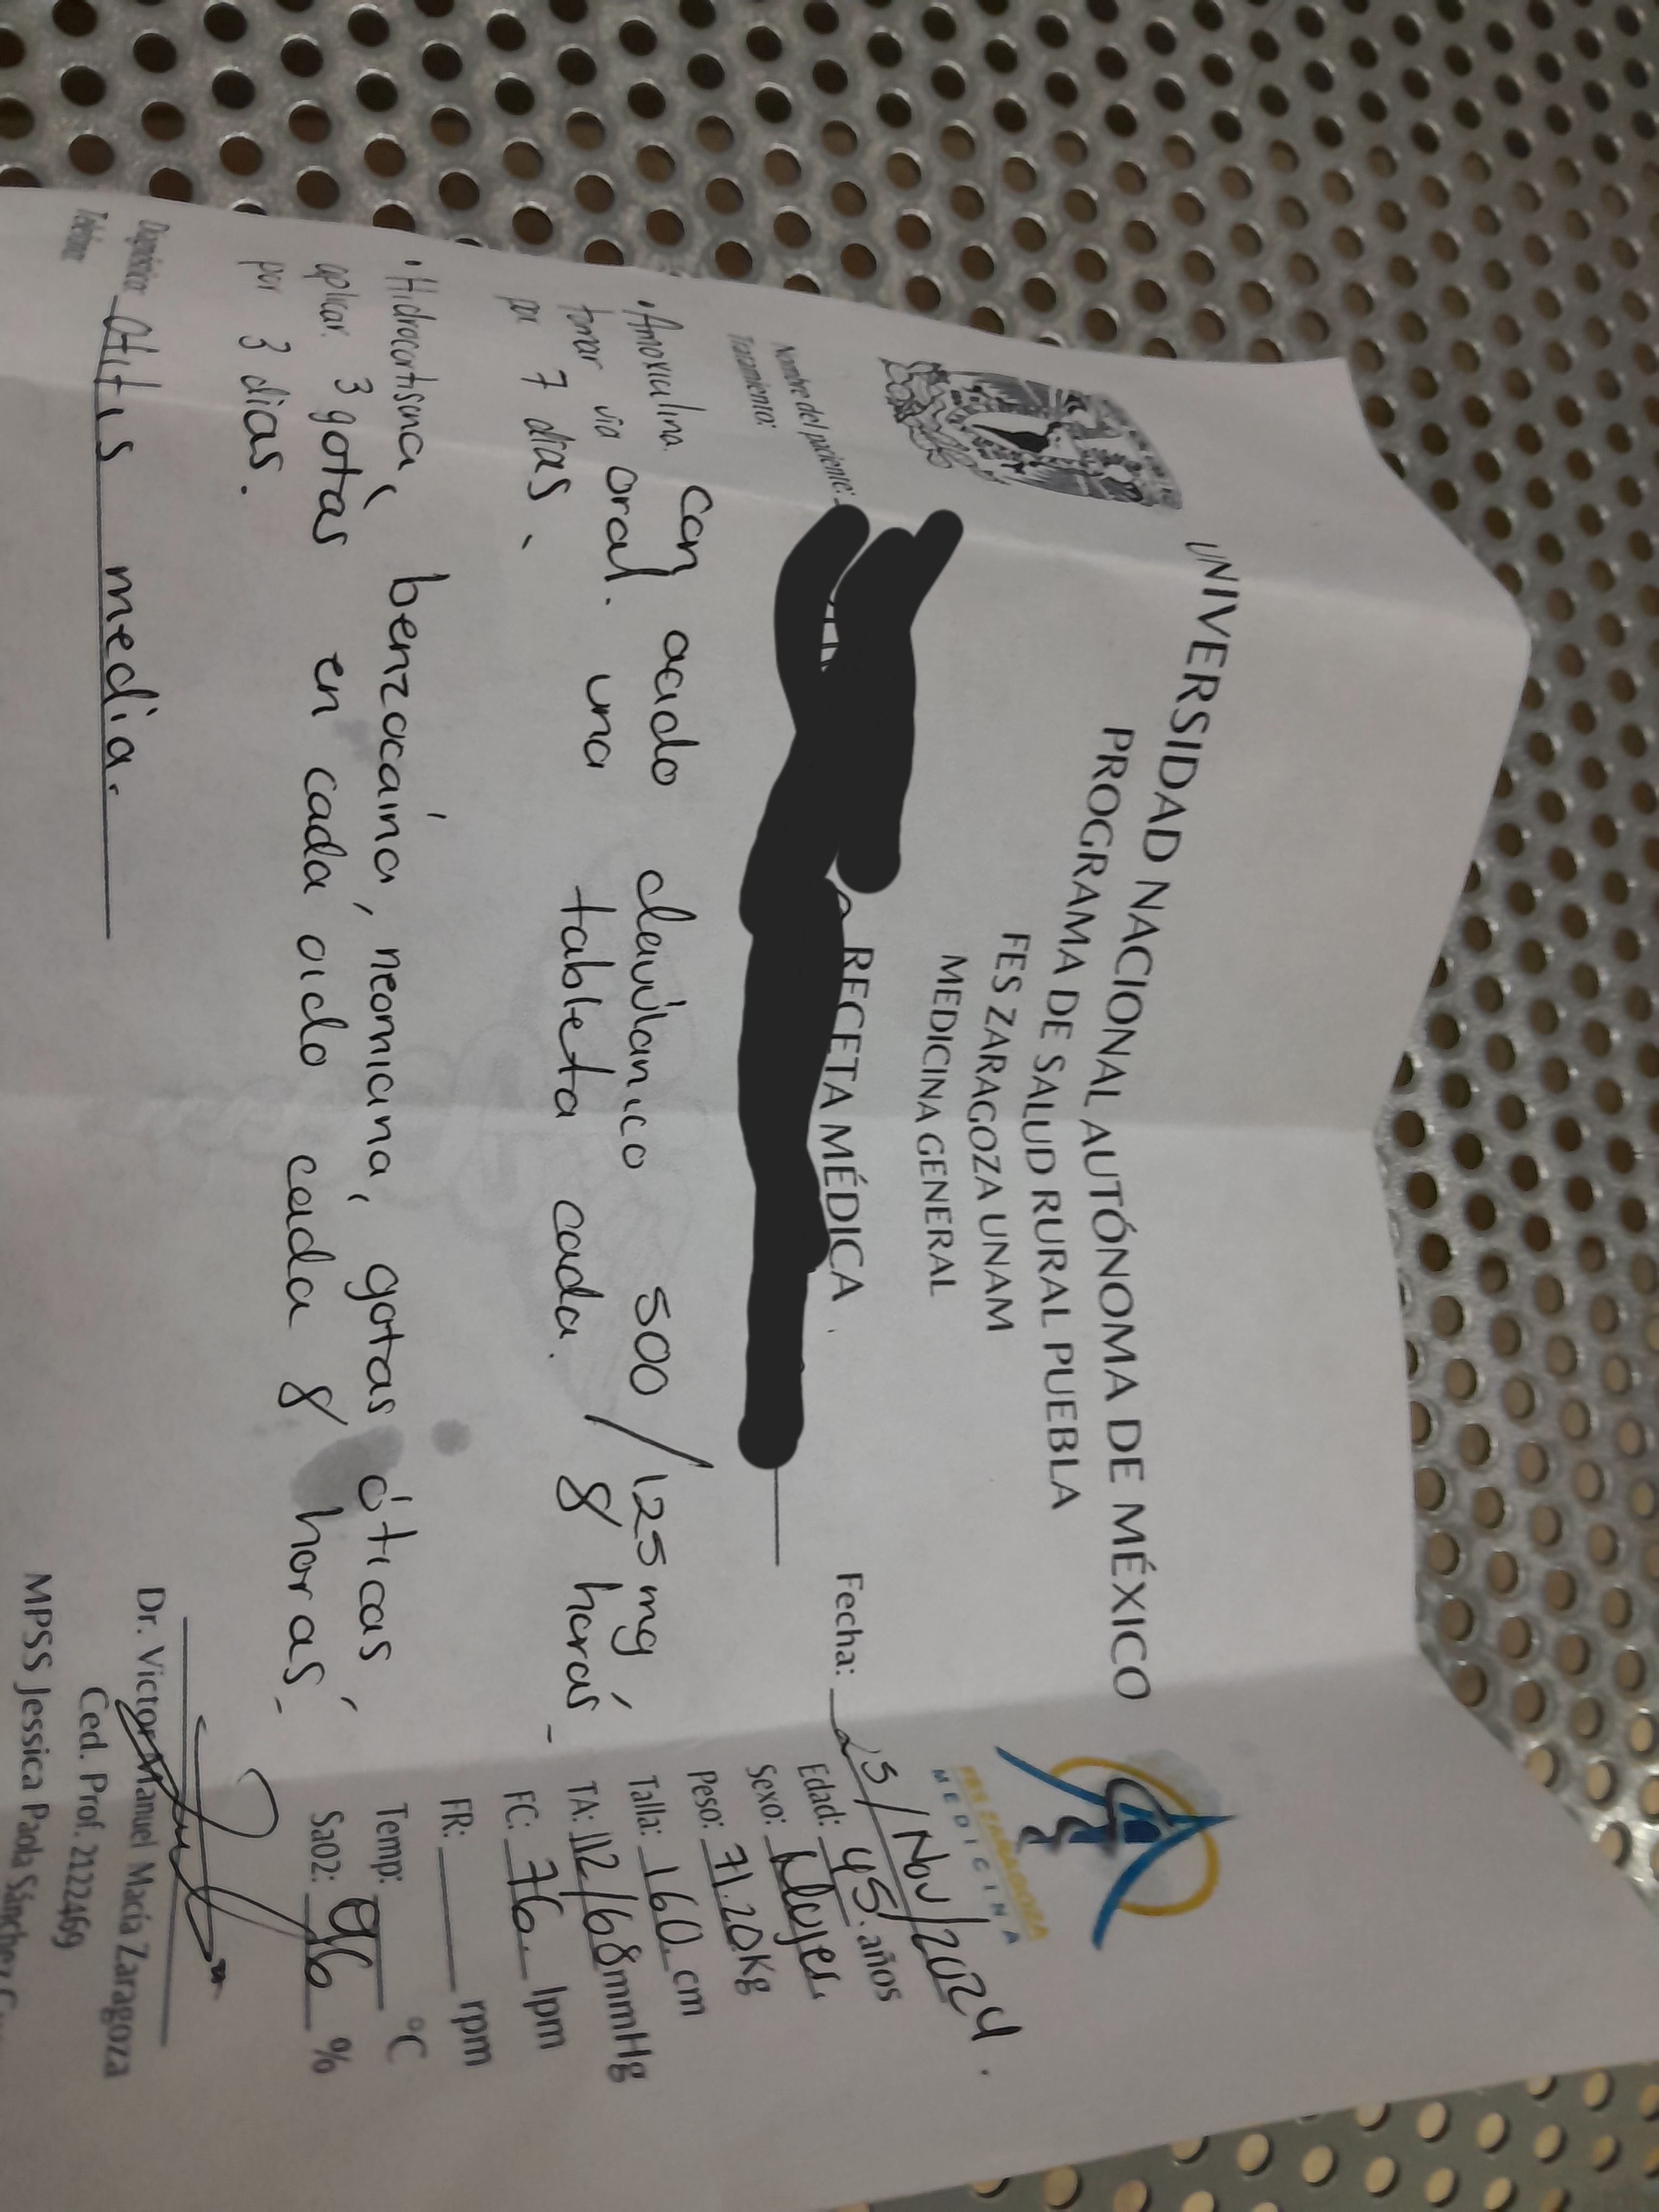 UNIVERSIDAD NACIONAL AUTÓNOMA DE MÉXICO
PROGRAMA DE SALUD RURAL PUEBLA
FES ZARAGOZA UNAM
MEDICINA GENERAL
FES ZARAGOZA
MEDICINA
RECETA MÉDICA
Fecha: 25/Nov/2024.
Nombre del paciente:
Tratamiento:
Edad: 45 años
Sexo: Mujer
Peso: 71.20 Kg
Talla: 160 cm
TA: 112/68 mmHg
FC: 76 lpm
FR: rpm
Temp: °C
SaO2: 96 %
• Amoxicilina con acido clavúlanico 500/125 mg
tomar via oral. una tableta cada. 8 horas
por 7 dias.
• Hidrocortisona, benzocaína, neomicina, gotas óticas,
aplicar 3 gotas en cada oido cada 8 horas
por 3 dias.
Diagnóstico: Otitis media.
Dr. Victor Manuel Macía Zaragoza
Ced. Prof. 2122469
MPSS Jessica Paola Sánchez